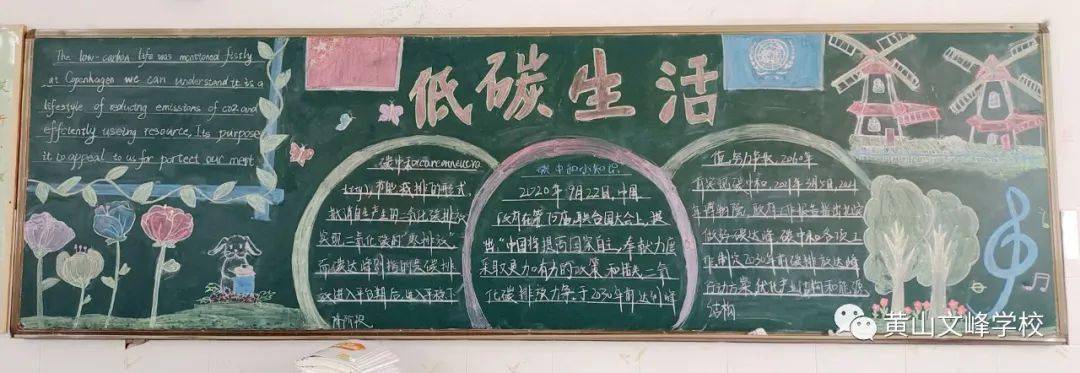 The low-carbon life was mentioned firstly
at Copenhagen we can understand it is a
lifestyle of reducing emissions of co2 and
efficiently useing resource, Its purpose
it to appeal to us for portect our
低碳生活
碳中和
节能 减排的形式,
自己产生的二氧化碳排放
实现二氧化碳的"零排放"
而碳达峰则指的是碳排
放进入平台期后,进入平稳下
降阶段
碳中和小知识
2020年9月22日,中国
政府在第75届联合国大会上提
出"中国将提高国家自主,奉献力度
采取更加有力的政策和措施,二氧
化碳排放力争于2030年前达到峰
值,努力争取2060年
前实现碳中和,2021年3月5日,2021
年 政府工作报告 指出 扎实
做好碳达峰 碳中和各项工
作,制定2030年前碳排放达峰
行动方案,优化产业结构和能源
结构
黄山文峰学校